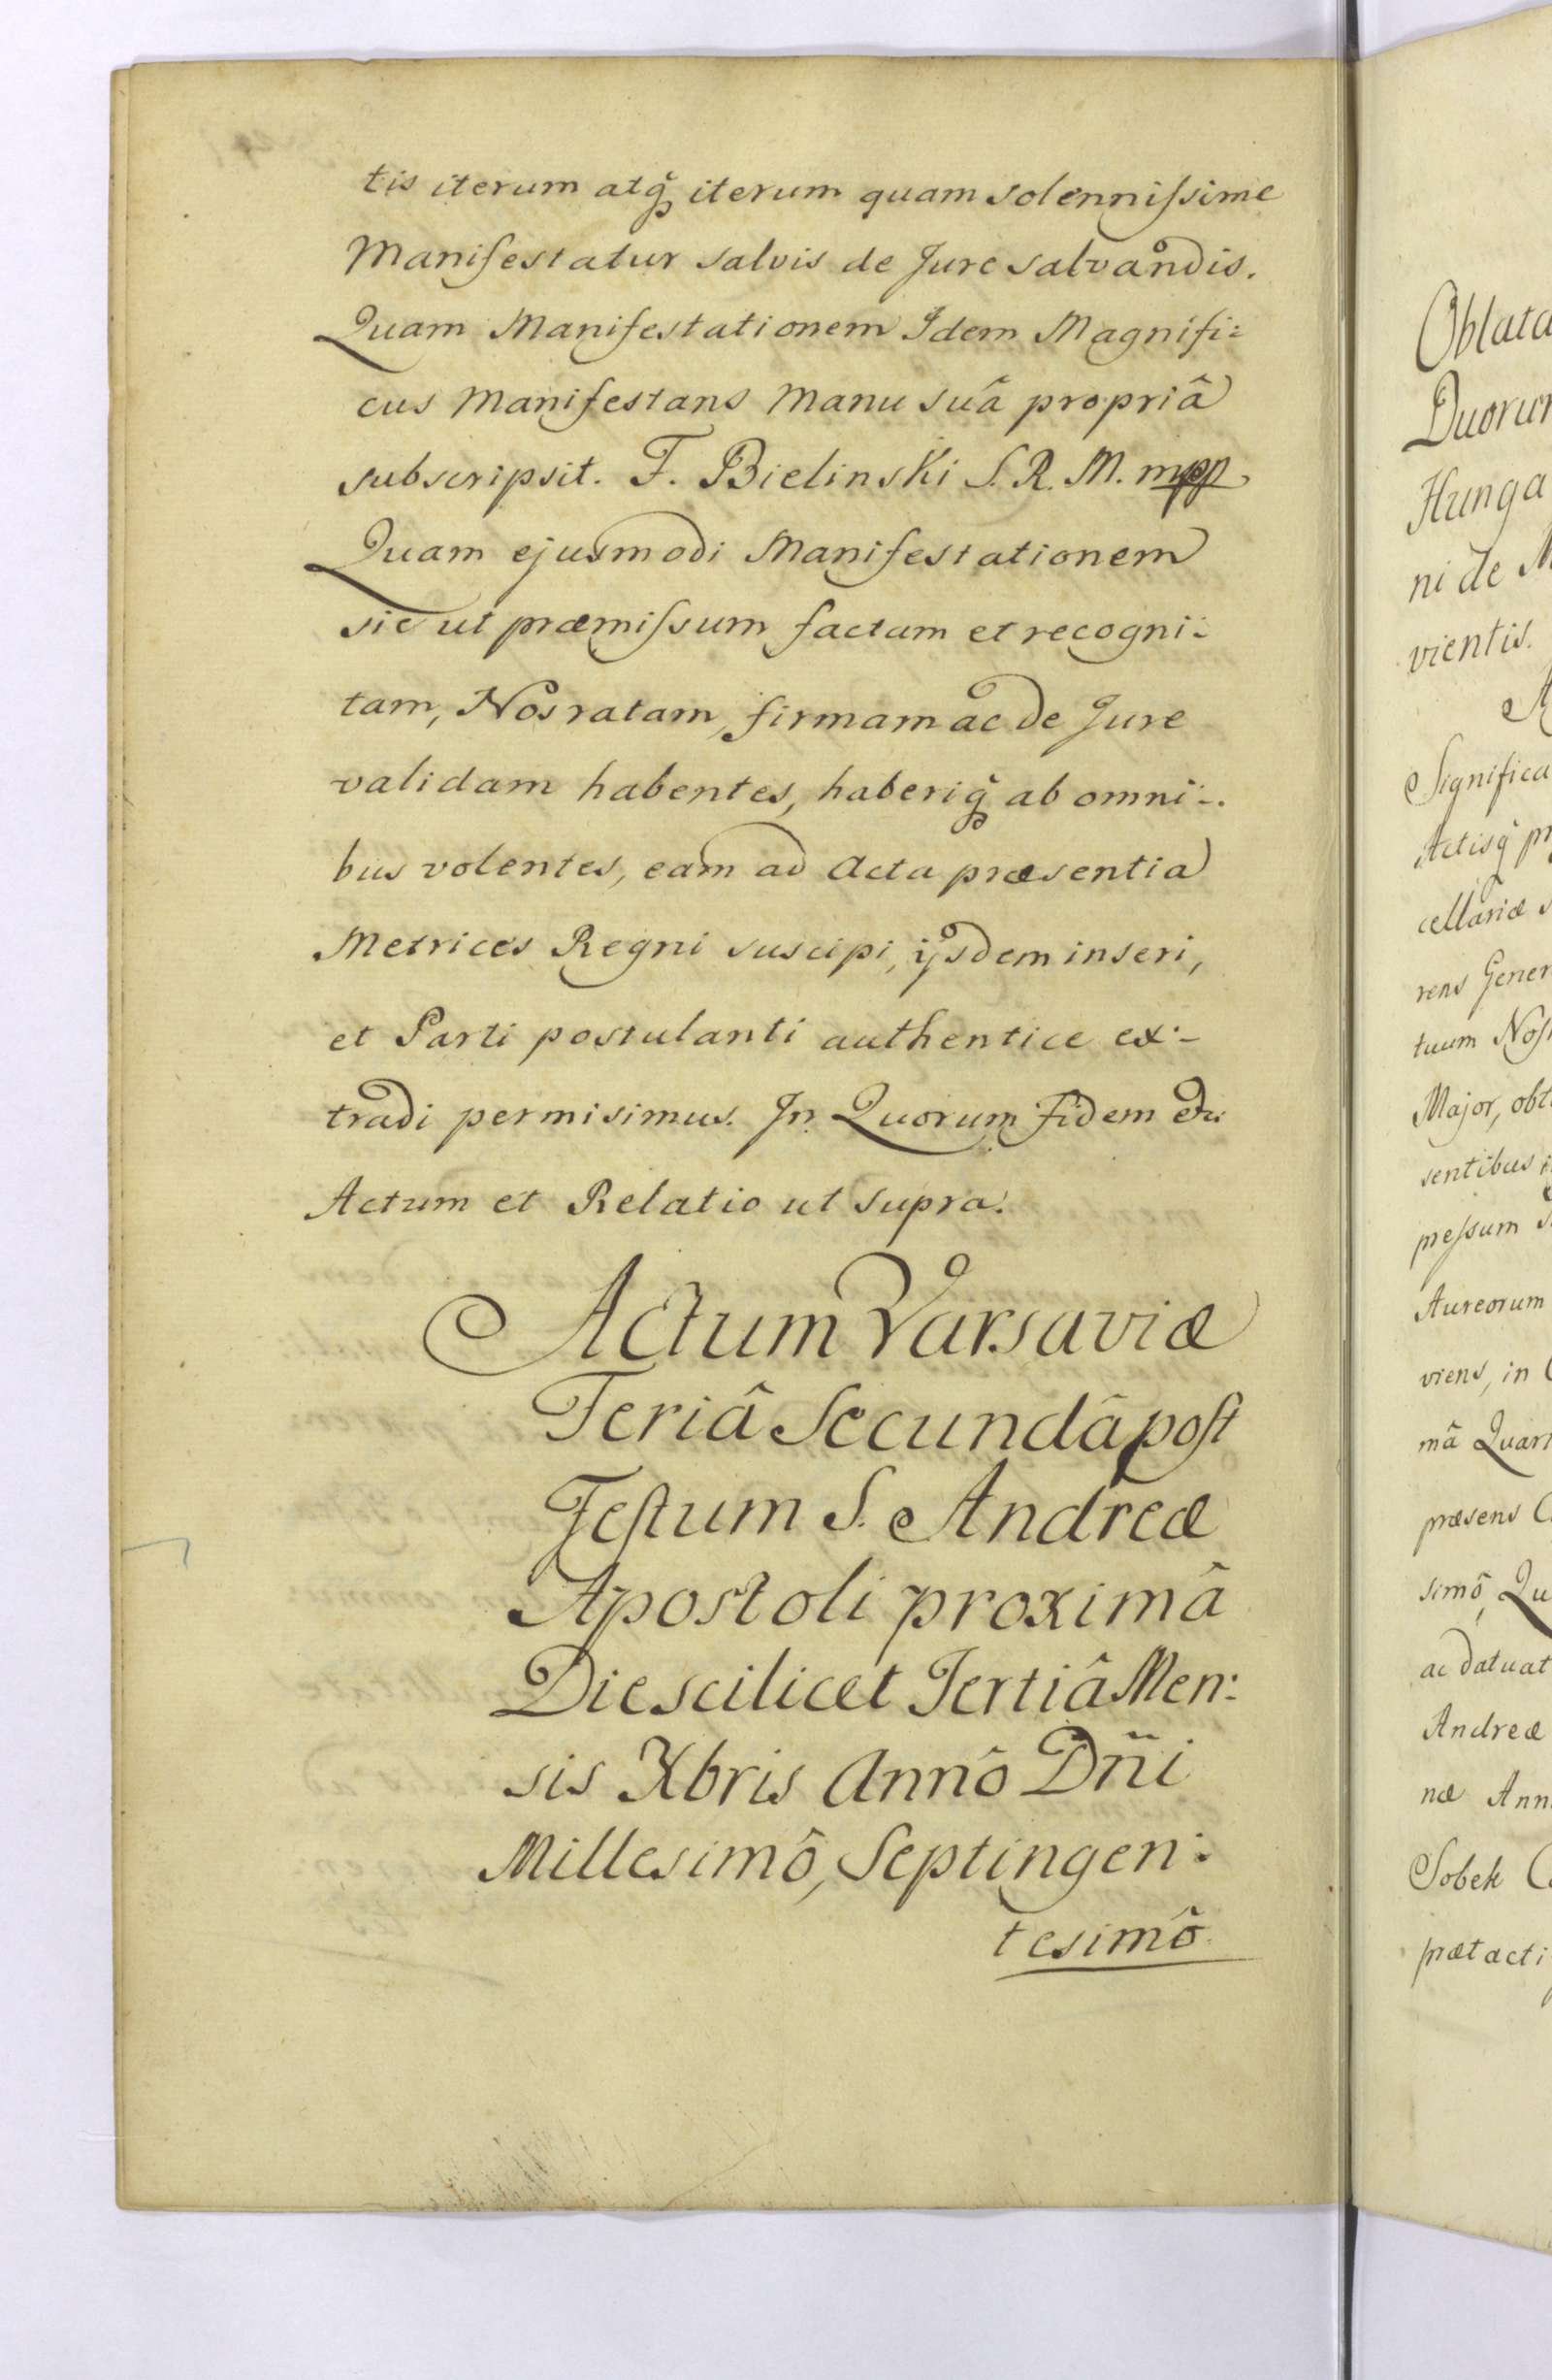 tis iterum atq̃ iterum quam solennissime
Manifestatur salvis de Jure salvandis.
Quam Manifestationem Idem Magnifi:
cus Manifestans Manu suâ propriâ
subscripsit. F. Bielinski S. R. M. mpp
Quam ejusmodi Manifestationem
sic ut præmissum factam et recogni:
tam, Nos ratam, firmam ac de Jure
validam habentes, haberiq̃ ab omni:
bus volentes, eam ad Acta præsentia
Metrices Regni suscipi, ijsdem inseri,
et Parti postulanti authentice ex:
tradi permisimus. In Quorum Fidem &c:
Actum et Relatio ut supra.
Actum Varsaviæ
Feriâ Secundâ post
Festum S. Andreæ
Apostoli proximâ
Die scilicet Tertiâ Men:
sis Xbris Annô Dñi
Millesimô, Septingen:
tesimô
Oblata
Duorum
Hunga
ni de M
vientis.
A
Significa
Actisq̃ pr
cellariæ s
rens Gener
tuum Nos
Major, obl
sentibus
pressum
Aureorum
viens, in C
mâ Quart
præsens C
simô, Qu
ac datuat
Andreæ
næ Ann
Sobek C
prætacti